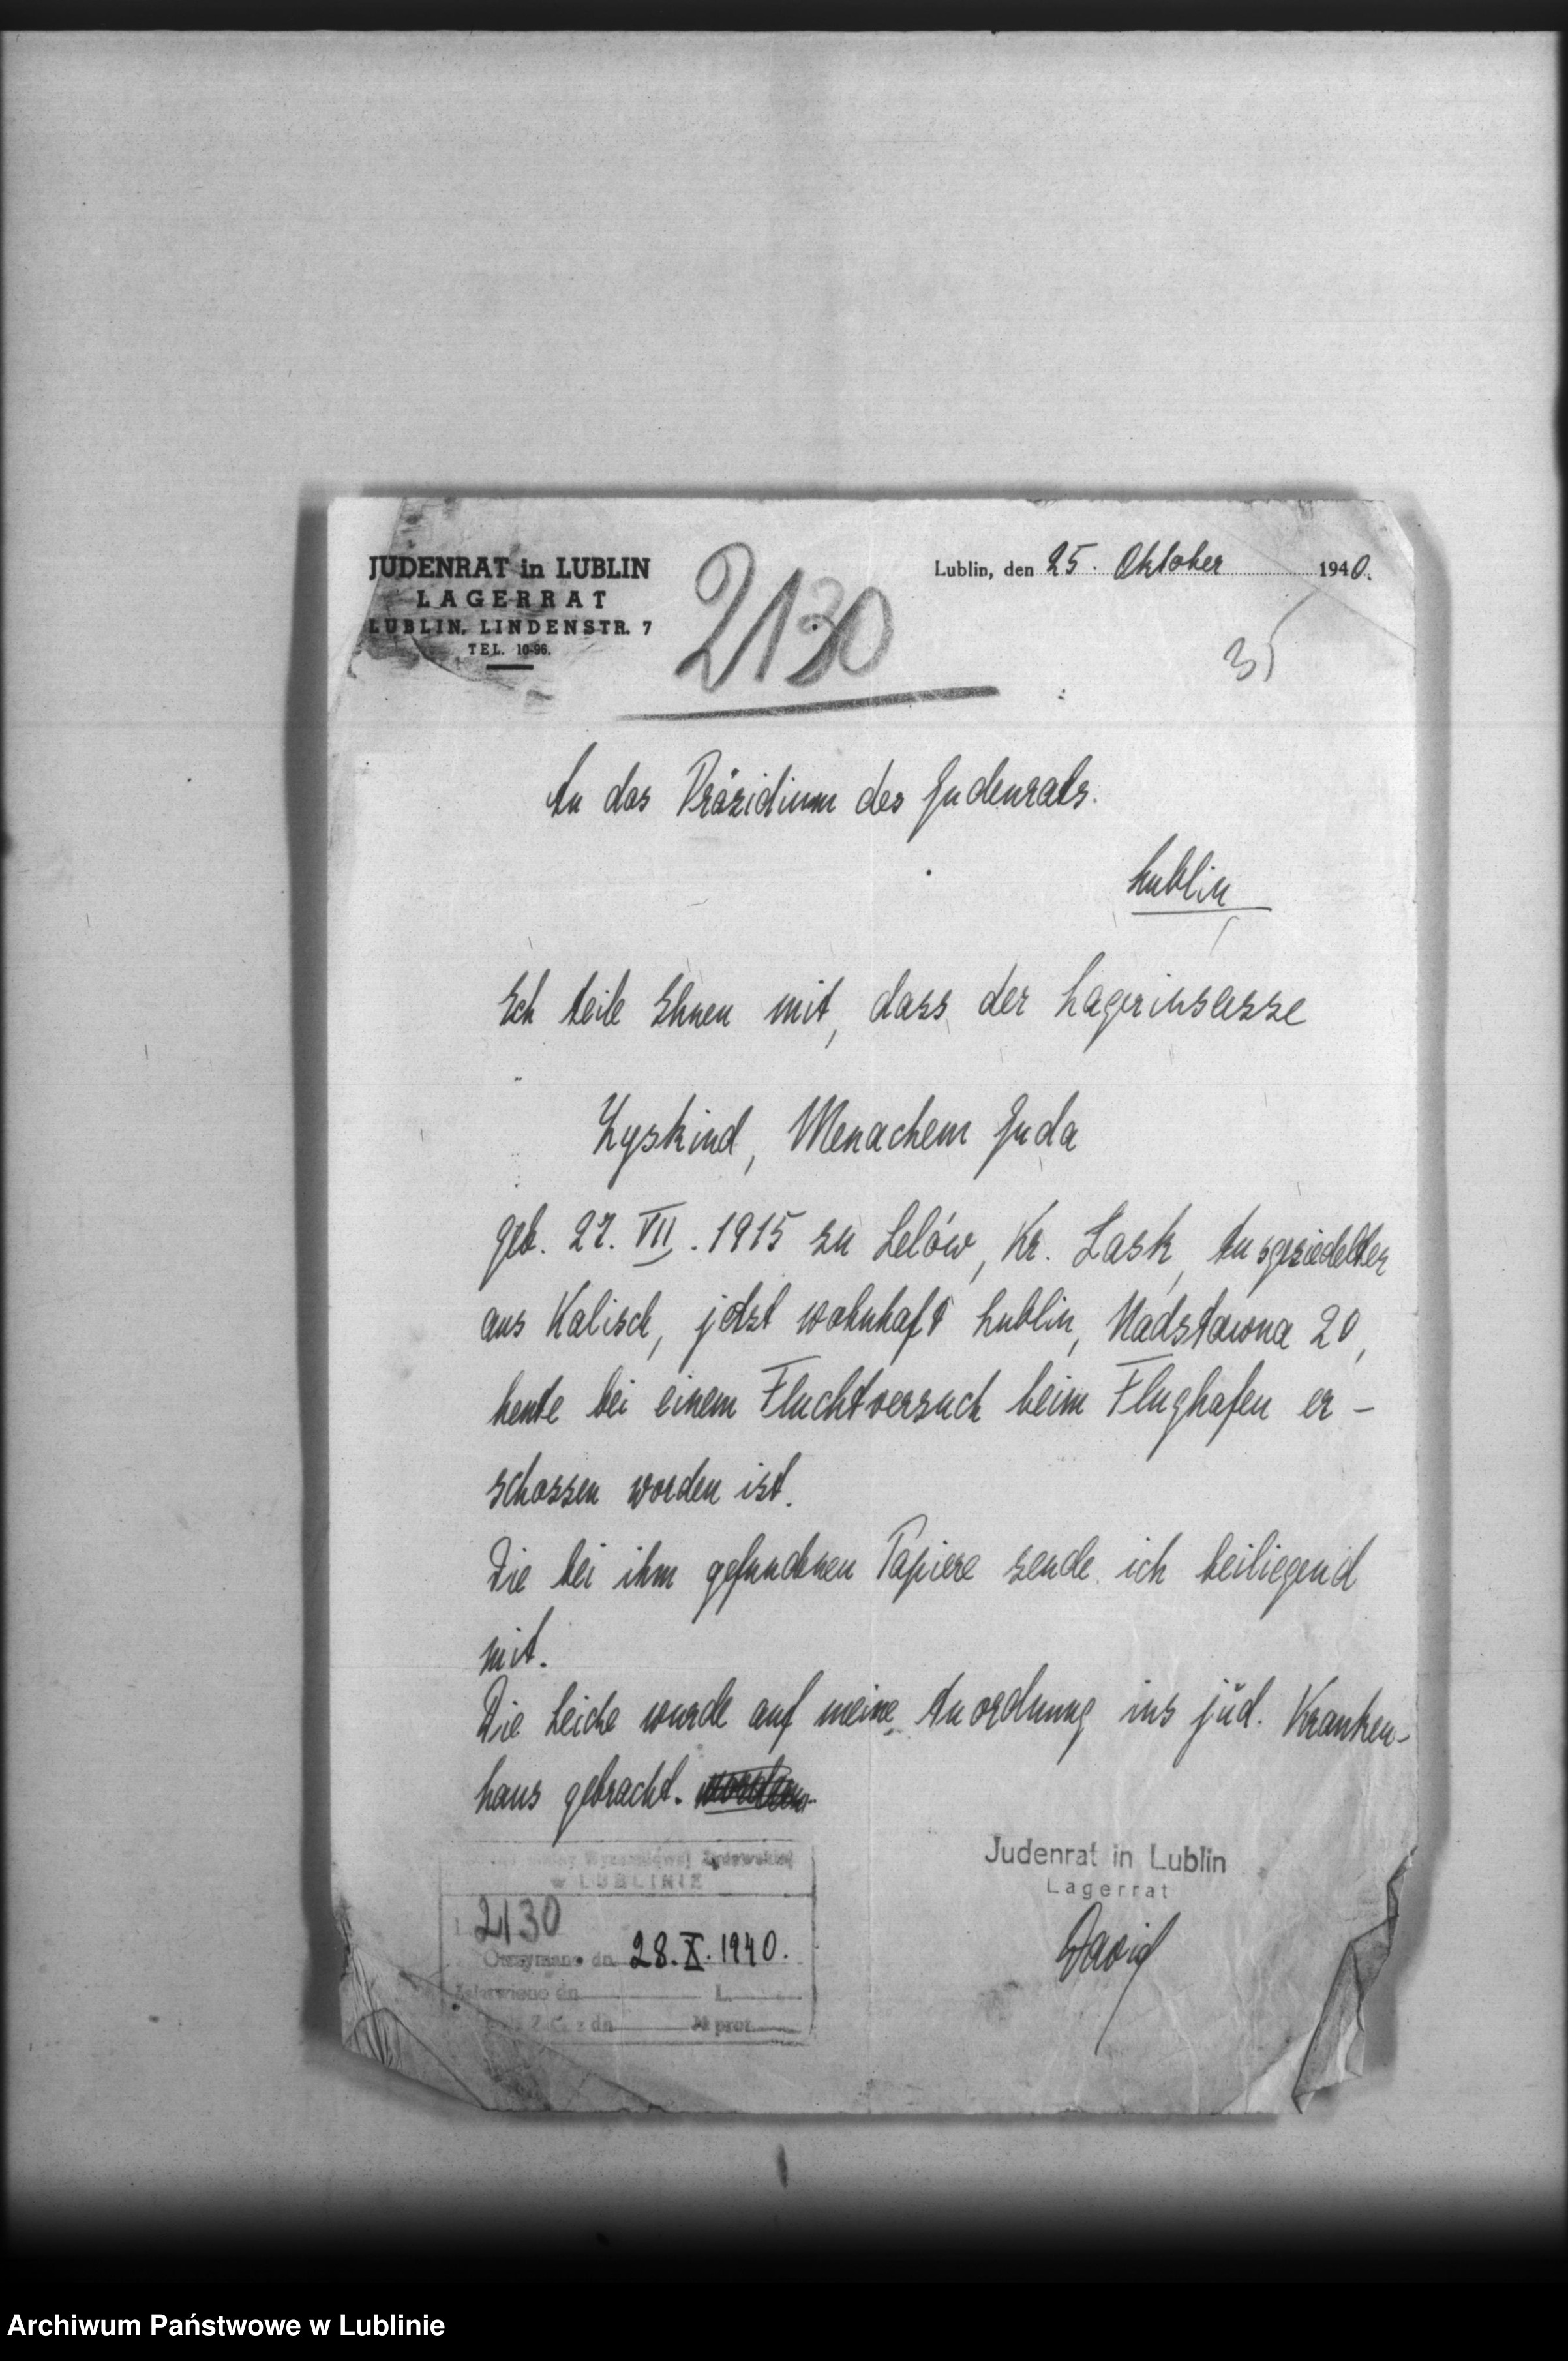 JUDENRAT in LUBLIN
LAGERRAT
LUBLIN, LINDENSTR. 7
TEL. 10-96.
2130
Lublin, den 25. Oktober 1940.
35
An das Präsidium des Judenrats.
Lublin
Ich teile Ihnen mit, dass der Lagerinsasse
Zyskind, Menachem Juda
geb. 27. VII. 1915 zu Lelów, Kr. Lask, Ausgesiedelter
aus Kalisch, jetzt wohnhaft Lublin, Nadstawna 20,
heute bei einem Fluchtversuch beim Flughafen er-
schossen worden ist.
Die bei ihm gefundenen Papiere sende ich beiliegend
mit.
Die Leiche wurde auf meine Anordnung ins jüd. Kranken-
haus gebracht. worden.
Wyznaniowej Żydowskiej
w LUBLINIE
L. 2130
Otrzymano dn. 28.X.1940.
Załatwiono dn L.
z dn № prot.
Judenrat in Lublin
Lagerrat
David
Archiwum Państwowe w Lublinie